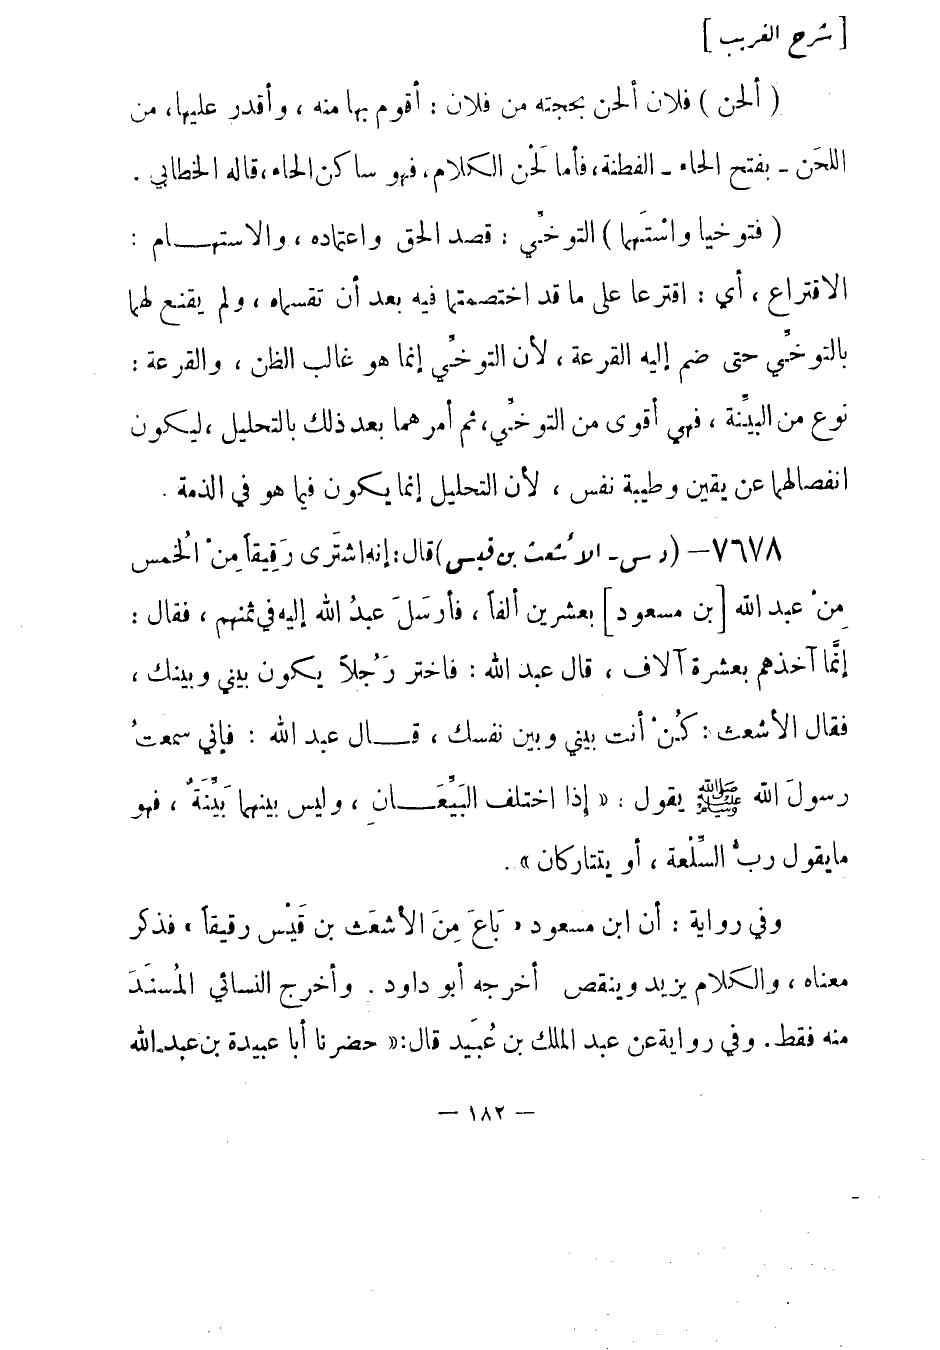 [ شرح الغريب ]
( ألحن ) فلان ألحن بحجته من فلان : أقوم بها منه ، وأقدر عليها، من
اللحَن – بفتح الحاء – الفطنة، فأما لَحْن الكلام، فهو ساكن الحاء، قاله الخطابي .
( فتوخيا واسْتَهما ) التوخِّي : قصد الحق واعتماده ، والاستهـــام :
الاقتراع ، أي : اقترعا على ما قد اختصمتما فيه بعد أن تقسماه ، ولم يقنع لهما
بالتوخِّي حتى ضم إليه القرعة ، لأن التوخِّي إنما هو غالب الظن ، والقرعة :
نوع من البيِّنة ، فهي أقوى من التوخِّي، ثم أمرهما بعد ذلك بالتحليل ،ليكون
انفصالهما عن يقين وطيبة نفس ، لأن التحليل إنما يكون فيما هو في الذمة .
٧٦٧٨ – ( د س – الأشعث بن قيس ) قال : إنه اشتَرى رَقِيقاً مِنْ الخُمس
مِنْ عبد الله [ بن مسعود ] بعشرين ألفاً ، فأرسَلَ عبدُ الله إليه في ثمنهم ، فقال :
إنَّما آخذهم بعشرة آلاف ، قال عبد الله : فاختر رَجُلاً يكون بيني وبينك ،
فقال الأشعث : كُنْ أنت بيني وبين نفسك ، قــال عبد الله : فإني سمعتُ
رسولَ الله ﷺ يقول : « إذا اختلف البَيِّعَــانِ ، وليس بينهما بَيِّنَةٌ ، فهو
ما يقول ربُّ السِّلْعة ، أو يتتاركان » .
وفي رواية : أن ابن مسعود « بَاعَ مِنَ الأشعَث بن قَيْس رقيقاً » فذكر
معناه ، والكلام يزيد وينقص أخرجه أبو داود . وأخرج النسائي المُسنَدَ
منه فقط . وفي رواية عن عبد الملك بن عُبَيد قال : « حضرنا أبا عبيدة بن عبد الله
– ١٨٢ –